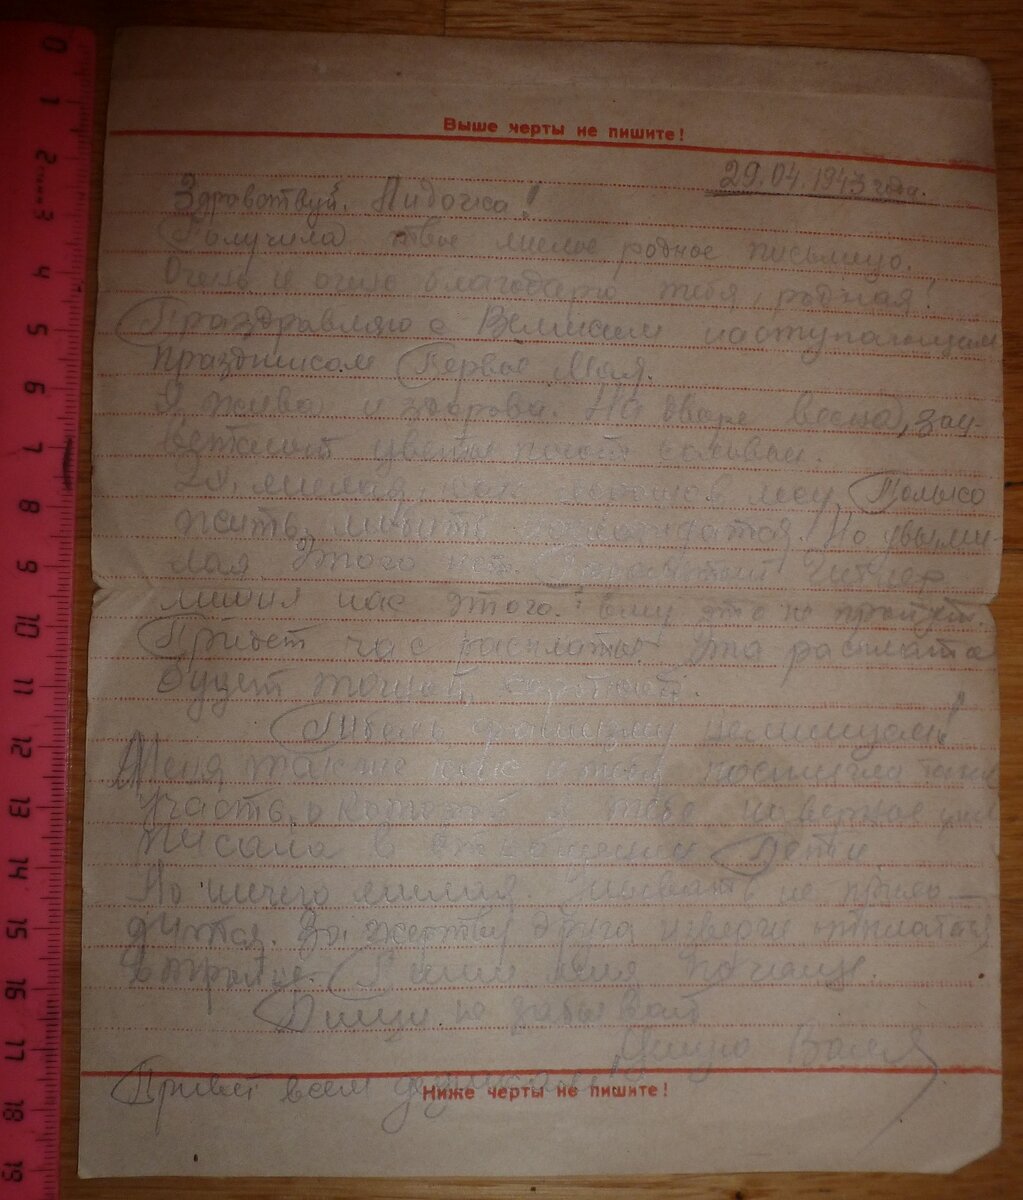 Выше черты не пишите!
29.04.1943 года.
Здравствуй, Лидочка!
Получила твое милое родное письмецо.
Очень и очень благодарю тебя, родная!
Праздравляю с Великим наступающим
праздником Первое Мая.
Я жива и здорова. На дворе весна, зац-
ветают цветы поют соловьи.
Эх, милая, как хорош лес, Только
жить, любить наслаждатся. Но увы ми-
лая этого нет. Проклятый Гитлер
лишил нас этого. Ему это не пройдет.
Придет час расплаты. Эта расплата
будет
Гибель фашизму
Меня также как и тебя постигла такая
участь, о которой я тебе наверное уже
писала в отношении Пети
Но ничего милая. Унывать не прихо-
дится. За жертвы друга изверги
втройне. Пиши мня почаще.
Пиши не забывай
Целую Валя
Привет всем
Ниже черты не пишите!
0 1 2 3 4 5 6 7 8 9 10 11 12 13 14 15 16 17 18 19